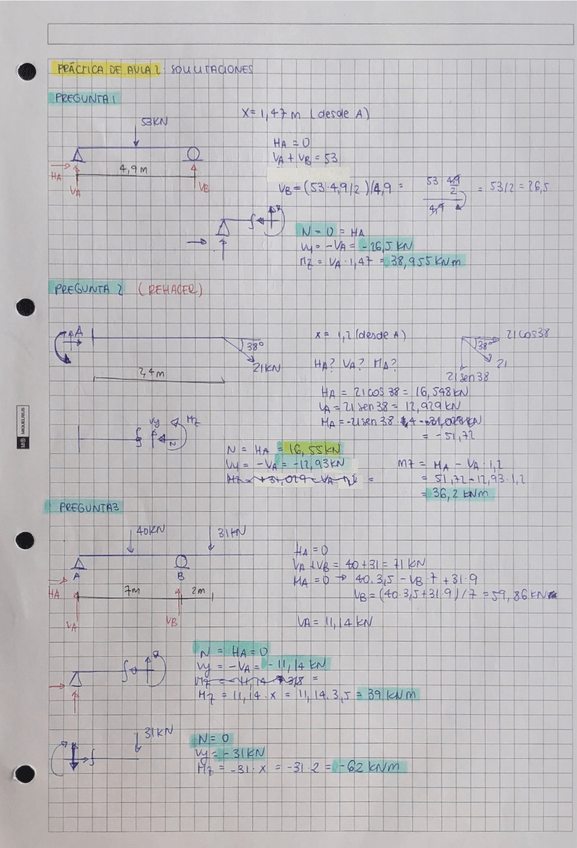 PRÁCTICA DE AULA 2 SOLICITACIONES
PREGUNTA 1
X = 1,47 m (desde A)
53KN
HA = 0
VA + VB = 53
4,9m
HA
VA
VB
VB = (53·4,9/2)/4,9 = 53 4,9/2 / 4,9 = 53/2 = 26,5
N = 0 = HA
Vy = -VA = -26,5 KN
Mz = VA·1,47 = 38,955 KNm
PREGUNTA 2 (REHACER)
A
38º
21KN
x = 1,2 (desde A)
38º
21cos38
21
21sen38
2,4m
HA? VA? MA?
HA = 21cos 38 = 16,548KN
VA = 21sen38 = 12,929KN
= -51,72
Vy
Mz
N
N = HA = 16,55KN
Vy = -VA = -12,93KN
Mz = MA - VA·1,2
= 51,72 - 12,93·1,2
= 36,2 KNm
PREGUNTA 3
40KN
31KN
A
B
7m
2m
HA
VA
VB
HA = 0
VA + VB = 40 + 31 = 71 KN
MA = 0 → 40·3,5 - VB 7 + 31·9
VB = (40·3,5 + 31·9)/7 = 59,86KN
VA = 11,14 KN
N = HA = 0
Vy = -VA = -11,14 KN
Mz = 11,14·x = 11,14·3,5 = 39 KNm
31KN
N = 0
Vy = -31KN
Mz = -31·x = -31·2 = -62 KNm